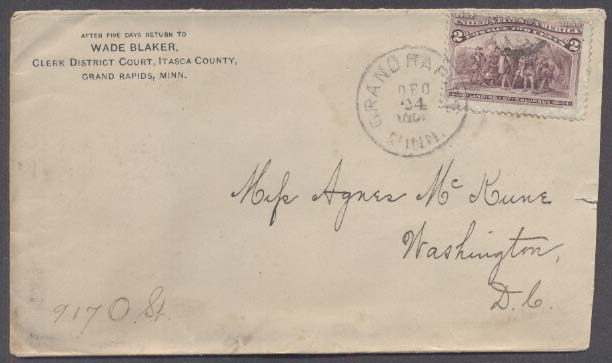 AFTER FIVE DAYS RETURN TO
WADE BLAKER,
CLERK DISTRICT COURT, ITASCA COUNTY,
GRAND RAPIDS, MINN.
UNITED STATES OF AMERICA
2 2
LANDING OF COLUMBUS
GRAND RAP
DEC
24
MINN.
Miss Agnes Mc Kune
Washington,
D.C.
917 O St.